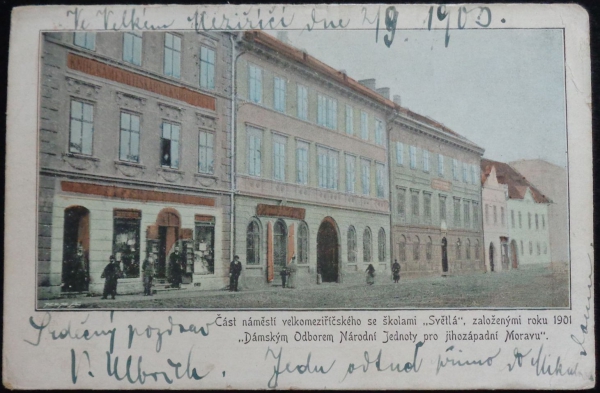 Ve Velkém Meziříčí dne 2/9 1903.
Část náměstí velkomeziříčského se školami „Světlá“, založenými roku 1901
„Dámským Odborem Národní Jednoty pro jihozápadní Moravu“.
Srdečný pozdrav
V. Ulbrich. Jedu odtud přímo do